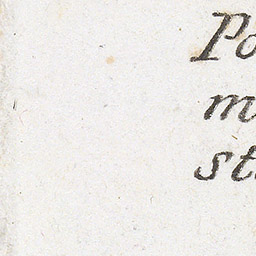 Po
m
st